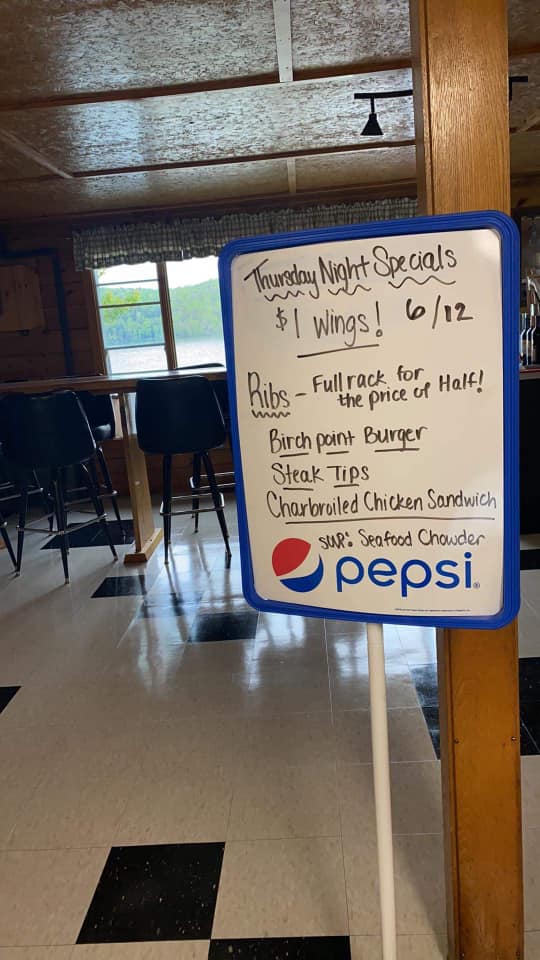 Thursday Night Specials
$1 Wings! 6/12
Ribs - Full rack for
the price of Half!
Birch point Burger
Steak Tips
Charbroiled Chicken Sandwich
Seafood Chowder
pepsi